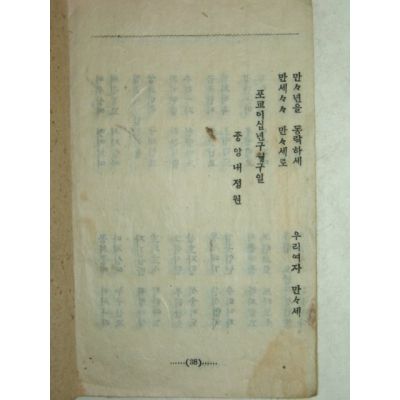 만々년을 동락하세 우리여자 만々세
만세々々 만々세로
포교이십년구월구일
중앙내정원
......(38)......